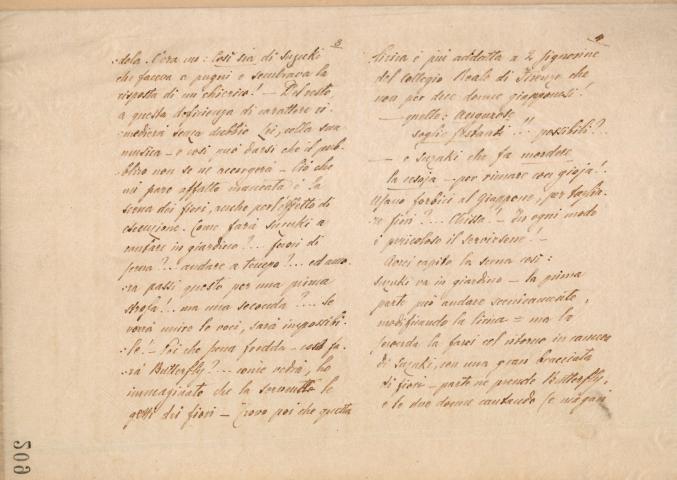 3
dola. C'era un: Così sia di Suzuki
che faceva a pugni e sembrava la
risposta di un chierico! — Del resto,
a questa deficienza di carattere ri-
medierà senza dubbio Lei, colla sua
musica — e così può darsi che il pub-
blico non se ne accorgerà — Ciò che
mi pare affatto mancata è la
scena dei fiori, anche per l'effetto di
esecuzione. Come farà Suzuki a
cantare in giardino?... fuori di
scena?... andare a tempo?... ed anco-
ra passi questo per una prima
strofa!... ma una seconda?... Se
vorrà unire le voci, sarà impossibi-
le! — Poi che scena fredda — cosa fa-
rà Butterfly?... come vedrà, ho
immaginato che la servetta le
getti dei fiori — Trovo poi che questa
4
lirica è più addatta a 2 signorine
del Collegio Reale di Firenze che
non per due donne giapponesi!
— quelle: 
soglie fragranti!! possibili?..
— e Suzuki che fa mordere
la cesoja — per rimare con gioja!..
Usano forbici al Giappone, per taglia-
re fiori?... Chissà! — In ogni modo
è pericoloso il servirsene! —
Avrei capito la scena così:
Suzuki va in giardino — la prima
parte può andare scenicamente,
modificando la lirica = ma la
seconda la farei col ritorno in camera
di Suzuki, con una gran bracciata
di fiori — parte ne prende Butterfly,
e le due donne cantando (e
209